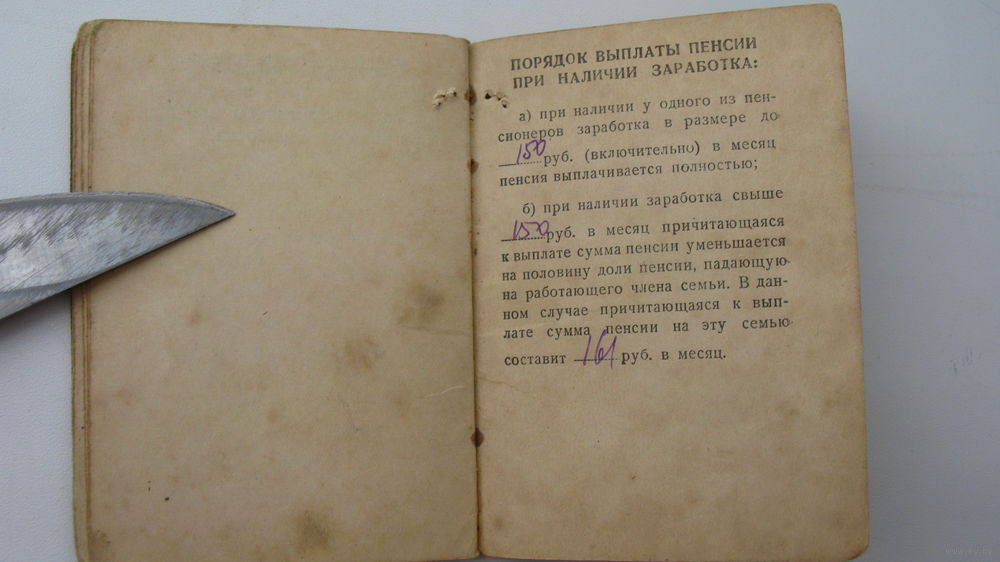 ПОРЯДОК ВЫПЛАТЫ ПЕНСИИ
ПРИ НАЛИЧИИ ЗАРАБОТКА:
а) при наличии у одного из пен-
сионеров заработка в размере до
150 руб. (включительно) в месяц
пенсия выплачивается полностью;
б) при наличии заработка свыше
150 руб. в месяц причитающаяся
к выплате сумма пенсии уменьшается
на половину доли пенсии, падающую
на работающего члена семьи. В дан-
ном случае причитающаяся к вып-
лате сумма пенсии на эту семью
составит 161 руб. в месяц.